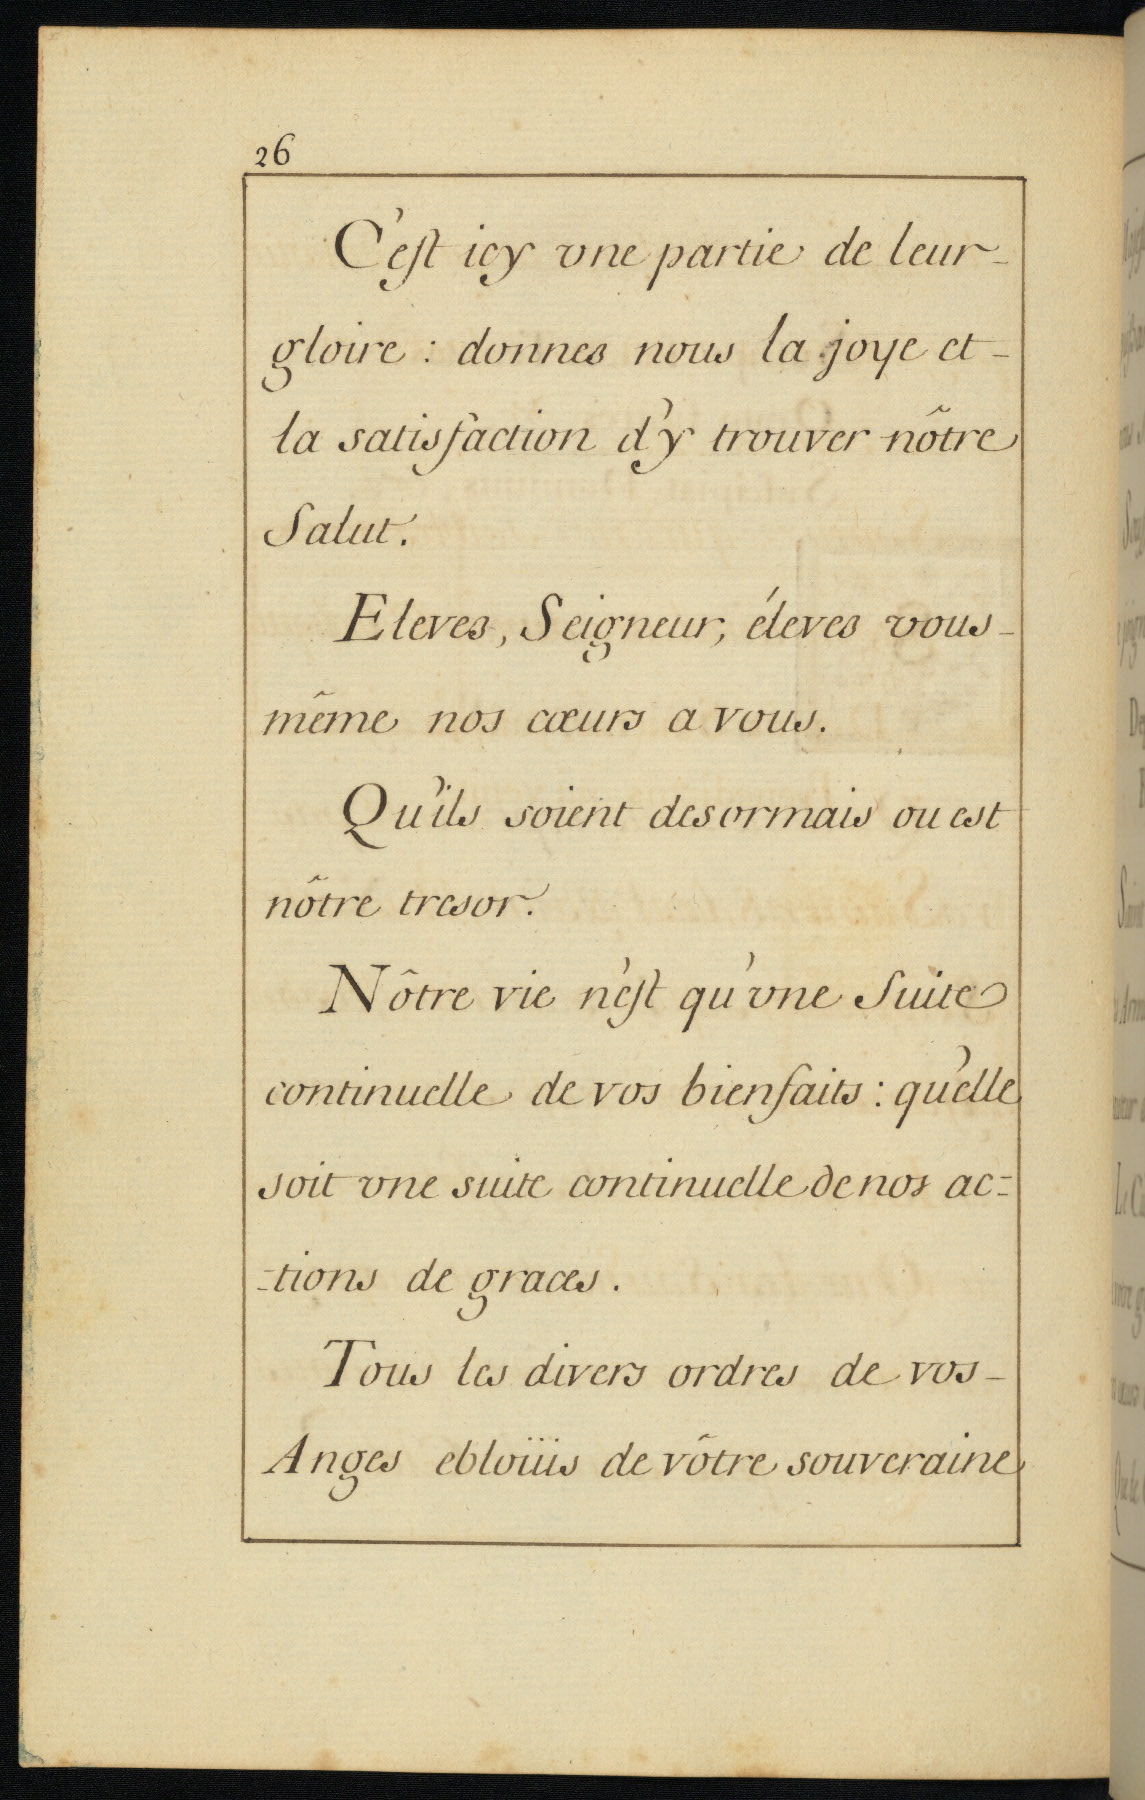 26
C'est icy vne partie de leur
gloire : donnes nous la joye et
la satisfaction d'y trouver nôtre
Salut.
Eleves, Seigneur, éleves vous
même nos cœurs a vous.
Qu'ils soient desormais ou est
nôtre tresor.
Nôtre vie n'est qu'vne Suite
continuelle de vos bienfaits : qu'elle
soit vne suite continuelle de nos ac=
=tions de graces.
Tous les divers ordres de vos
Anges ebloüis de vôtre souveraine